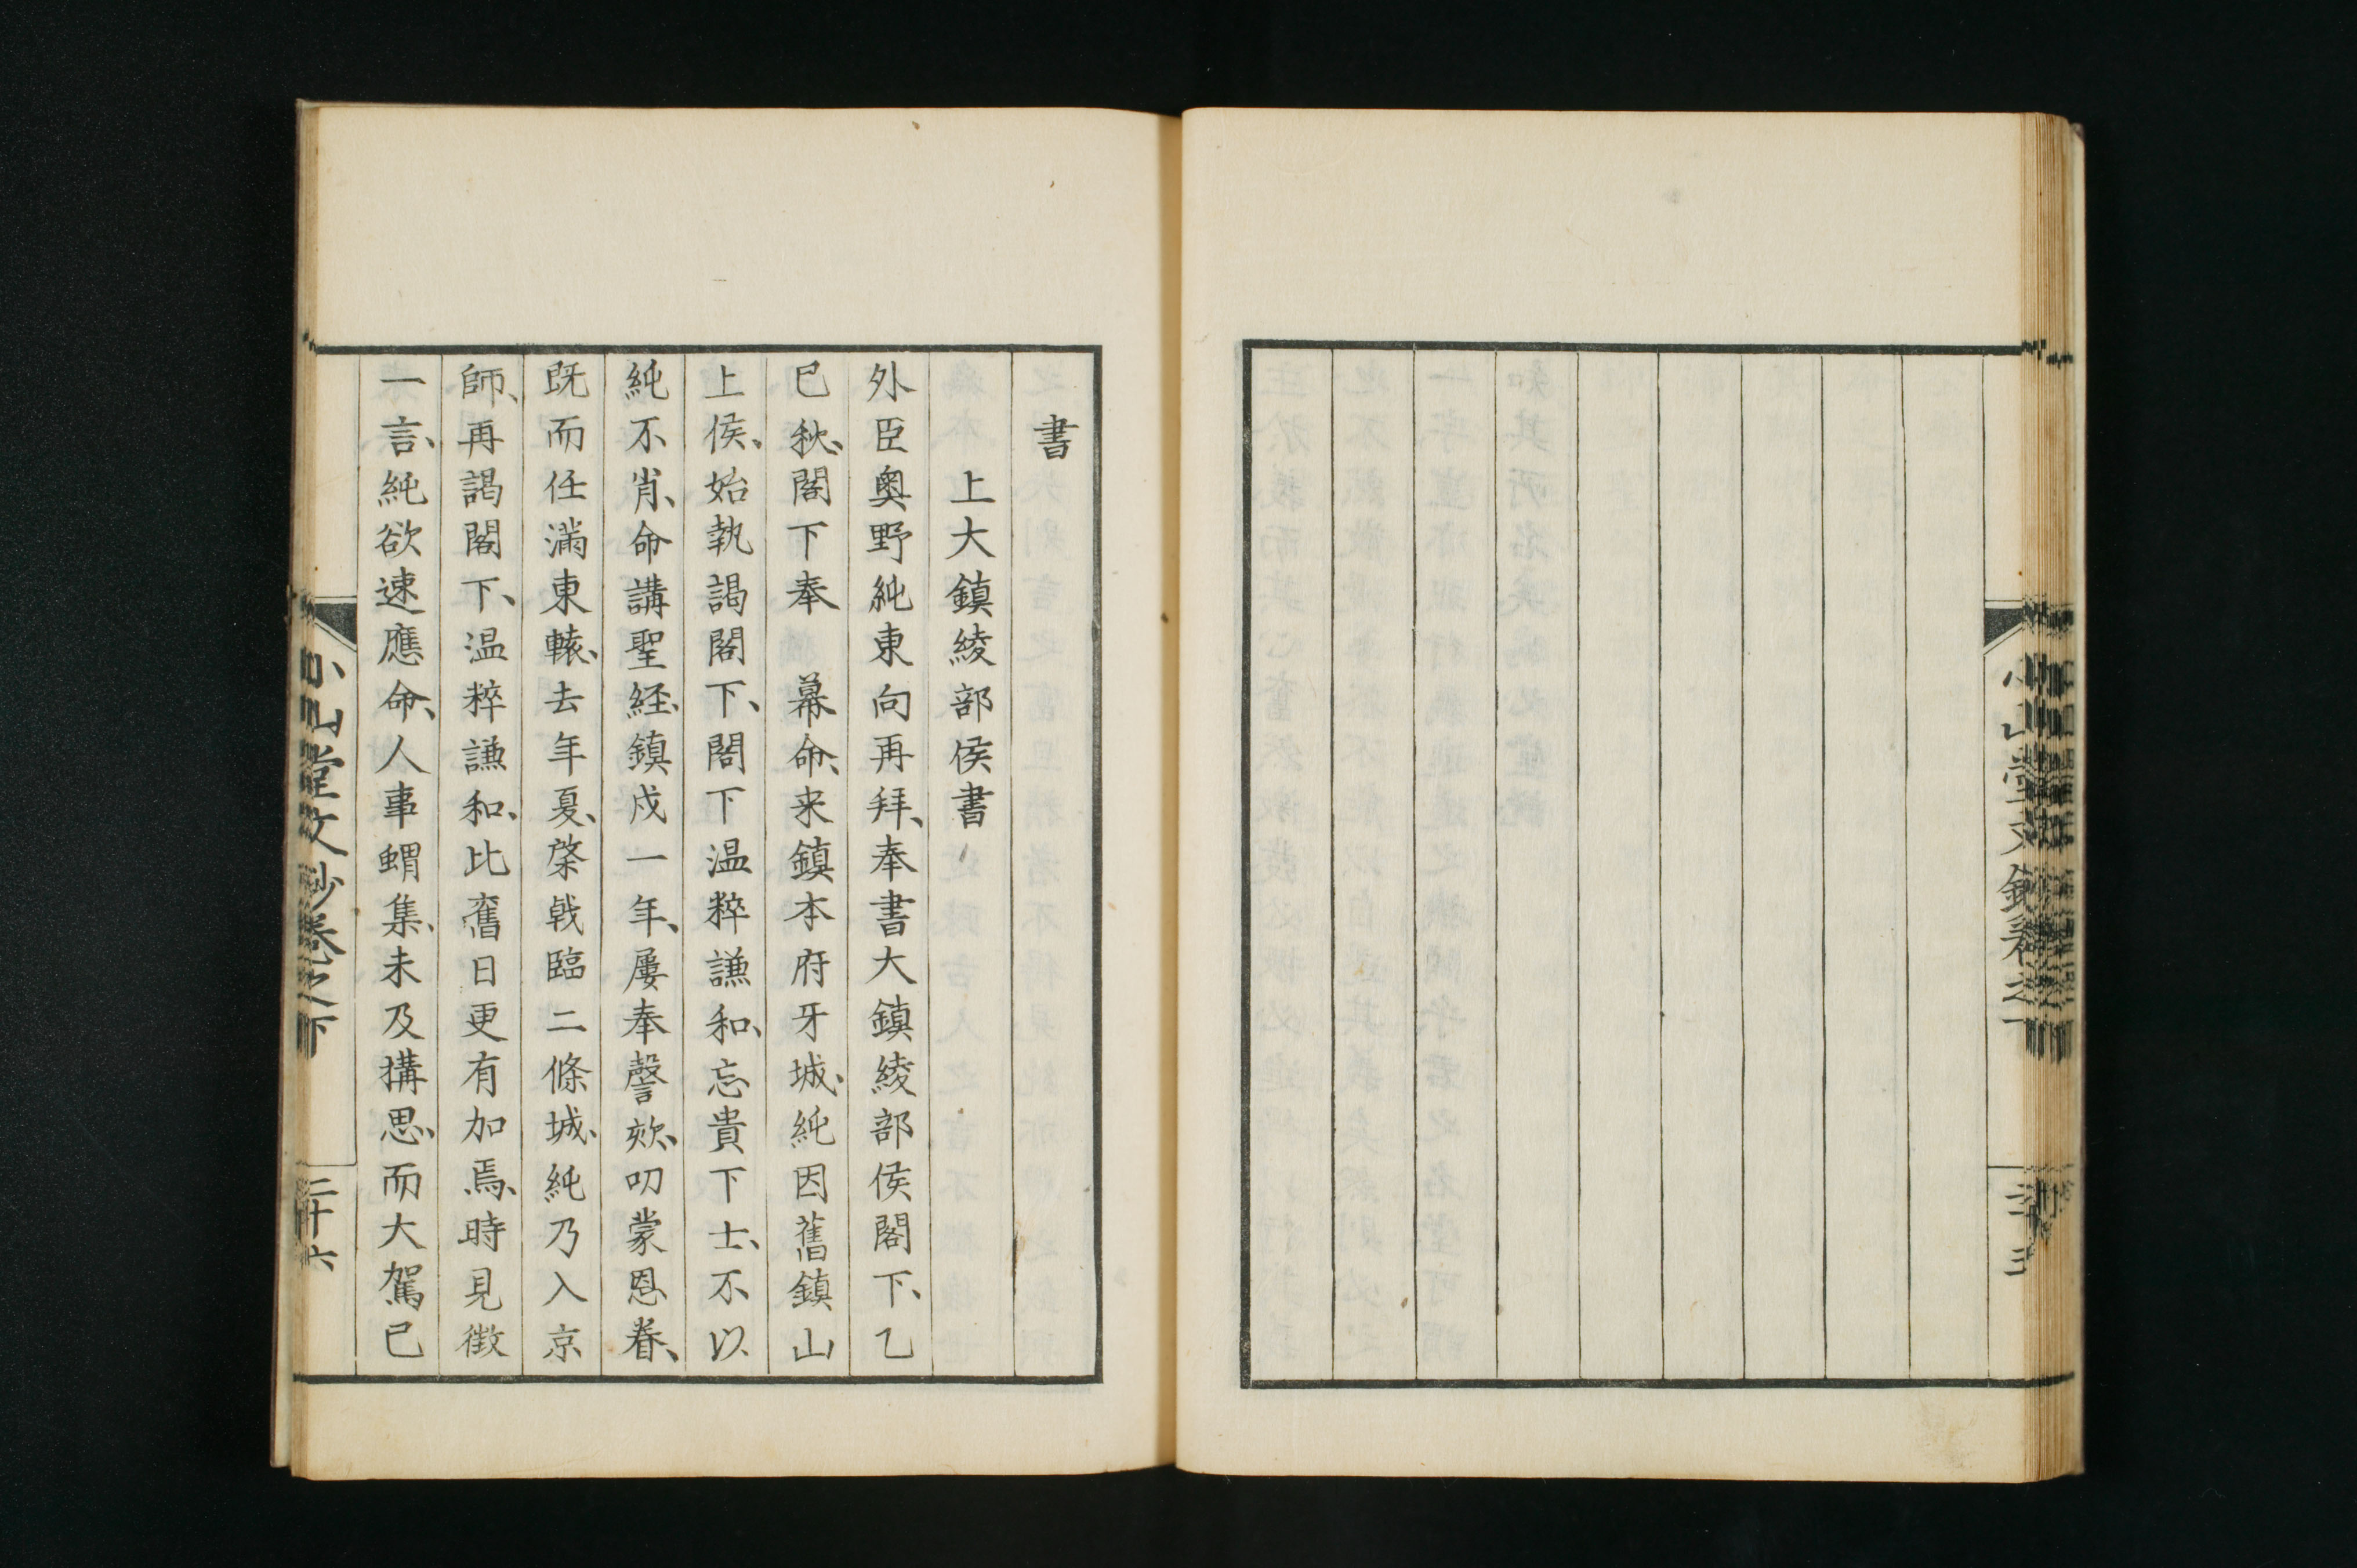 書
上大鎮綾部侯書
外臣奥野純東向再拜、奉書大鎮綾部侯閣下、乙
巳秋、閣下奉　幕命、来鎮本府牙城、純因舊鎮山
上侯、始執謁閣下、閣下温粹謙和、忘貴下士、不以
純不肖、命講聖経、鎮戍一年、屢奉謦欬、叨蒙恩眷、
既而任滿東轅、去年夏、棨戟臨二條城、純乃入京
師、再謁閣下、温粹謙和、比舊日更有加焉、時見徴
一言、純欲速應命、人事蝟集、未及搆思、而大駕已
小山堂文鈔卷之下
三十六